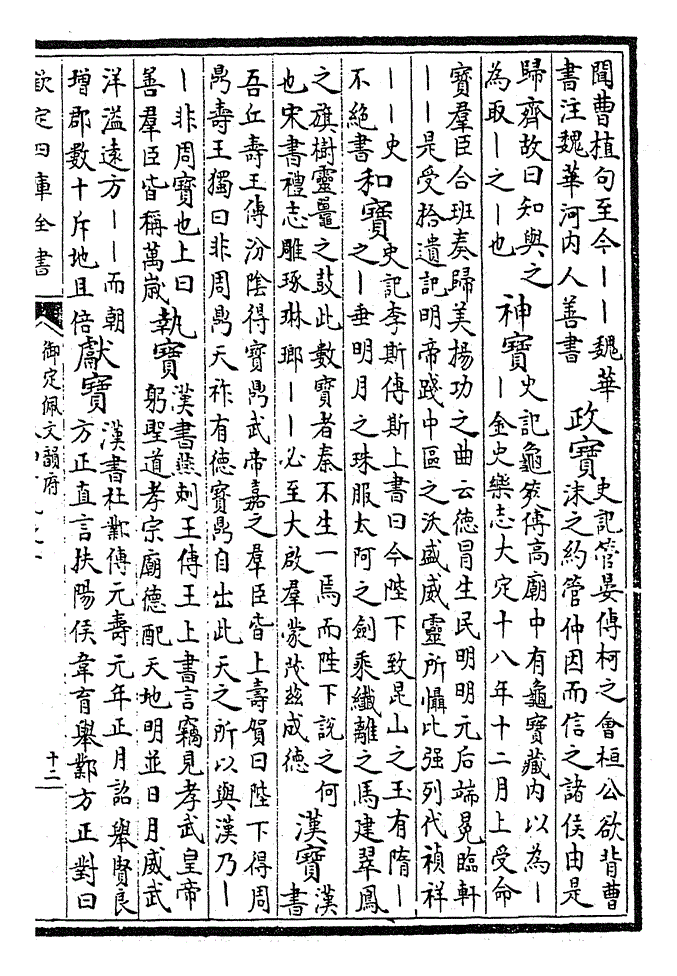 聞曹植句至今丨丨魏華
書注魏華河内人善書
政寶
史記管晏傳柯之會桓公欲背曹
沫之約管仲因而信之諸侯由是
歸齊故曰知與之
為取丨之丨也
神寶
史記龜筴傳高廟中有龜寶藏内以為丨
丨金史樂志大定十八年十二月上受命
寶羣臣合班奏歸美揚功之曲云德冒生民明明元后端冕臨軒
丨丨是受拾遺記明帝踐中區之沃盛威靈所懾比强列代禎祥
丨丨史
不絶書
和寶
史記李斯傳斯上書曰今陛下致昆山之玉有隋丨
之丨垂明月之珠服太阿之劍乘纖離之馬建翠鳳
之旗樹靈鼉之鼓此數寶者秦不生一焉而陛下說之何
也宋書禮志雕琢琳瑯丨丨必至大啟羣蒙茂兹成德
漢寶
漢
書
吾丘壽王傳汾陰得寶鼎武帝嘉之羣臣皆上壽賀曰陛下得周
鼎壽王獨曰非周鼎天祚有德寶鼎自出此天之所以與漢乃丨
丨非周寶也上曰
善羣臣皆稱萬嵗
執寶
漢書燕剌王傳王上書言竊見孝武皇帝
躬聖道孝宗廟德配天地明並日月威武
洋溢遠方丨丨而朝
增郡數十斥地且倍
獻寶
漢書杜鄴傳元壽元年正月詔舉賢良
方正直言扶陽侯韋育舉鄴方正對曰
欽定四庫全書
御定佩文韻府
十二